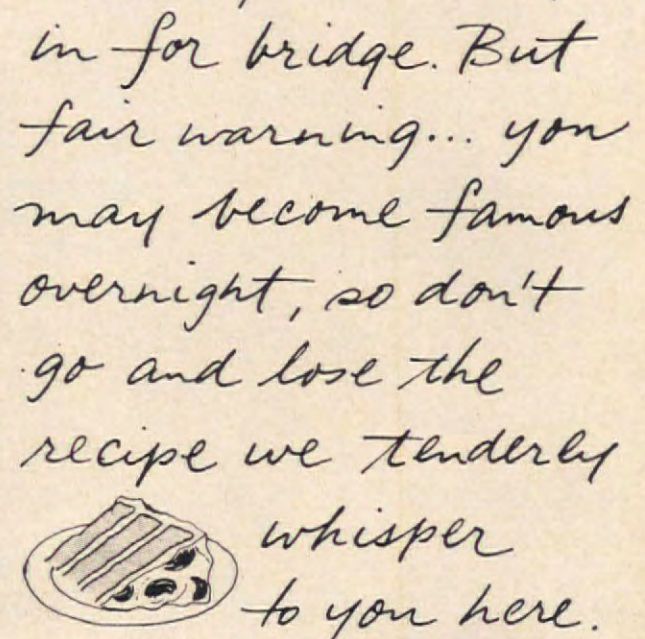 in for bridge. But
fair warning... you
may become famous
overnight, so don't
go and lose the
recipe we tenderly
whisper
to you here.